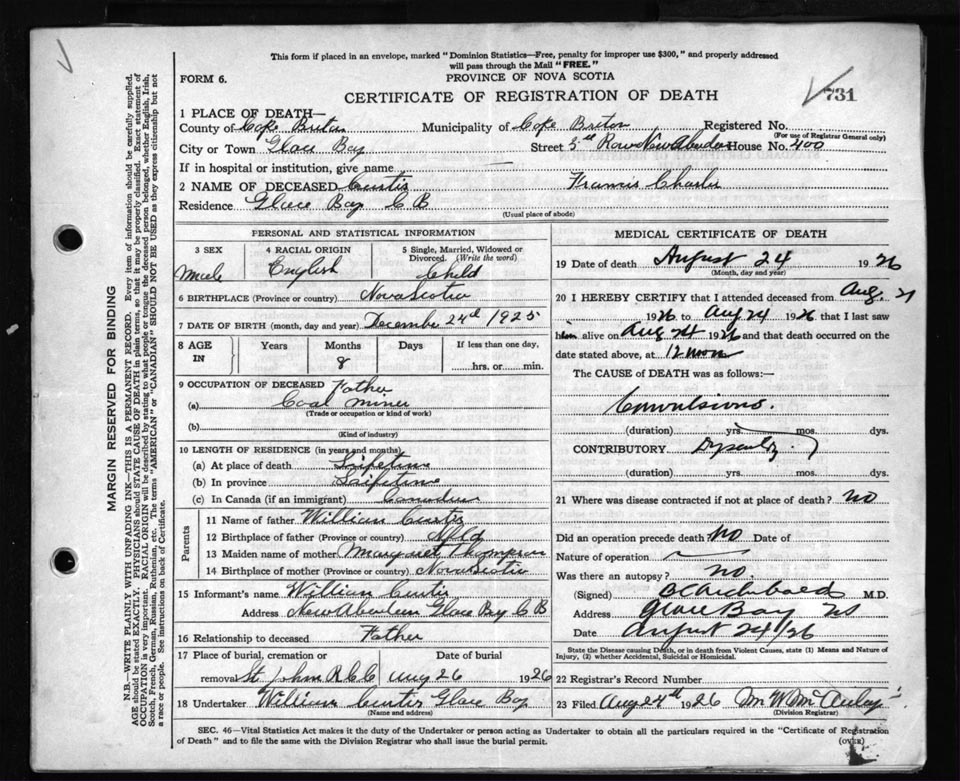 This form if placed in an envelope, marked "Dominion Statistics—Free, penalty for improper use $300," and properly addressed
will pass through the Mail "FREE."
FORM 6.
PROVINCE OF NOVA SCOTIA
CERTIFICATE OF REGISTRATION OF DEATH
731
MARGIN RESERVED FOR BINDING
N.B.—WRITE PLAINLY WITH UNFADING INK—THIS IS A PERMANENT RECORD. Every item of information should be carefully supplied.
AGE should be stated EXACTLY. PHYSICIANS should STATE CAUSE OF DEATH in plain terms, so that it may be properly classified. Exact statement of
OCCUPATION is very important. RACIAL ORIGIN will be described by stating to what people or tongue the deceased person belonged, whether English, Irish,
Scotch, French, German, Russian, Ruthenian, etc. The terms "AMERICAN" or "CANADIAN" SHOULD NOT BE USED as they express citizenship but not
a race or people. See instructions on back of Certificate.
1 PLACE OF DEATH—
County of Cape Breton Municipality of Cape Breton Registered No.
(For use of Registrar General only)
City or Town Glace Bay Street 5th Row New Aberdeen House No. 400
If in hospital or institution, give name —
2 NAME OF DECEASED Curtis Francis Charles
Residence Glace Bay C B
(Usual place of abode)
PERSONAL AND STATISTICAL INFORMATION
3 SEX 4 RACIAL ORIGIN 5 Single, Married, Widowed or
Divorced. (Write the word)
Male English Child
6 BIRTHPLACE (Province or country) Nova Scotia
7 DATE OF BIRTH (month, day and year) December 24th 1925
8 AGE IN Years Months Days If less than one day,
8 hrs. or min.
9 OCCUPATION OF DECEASED Father
(a) Coal Miner
(Trade or occupation or kind of work)
(b)
(Kind of industry)
10 LENGTH OF RESIDENCE (in years and months)
(a) At place of death Lifetime
(b) In province Lifetime
(c) In Canada (if an immigrant) Canadian
Parents
11 Name of father William Curtis
12 Birthplace of father (Province or country) Nfld
13 Maiden name of mother Margaret Thompson
14 Birthplace of mother (Province or country) Nova Scotia
15 Informant's name William Curtis
Address New Aberdeen Glace Bay C B
16 Relationship to deceased Father
17 Place of burial, cremation or Date of burial
removal St. Johns R C C Aug 26 1926
18 Undertaker William Curtis Glace Bay
(Name and address)
MEDICAL CERTIFICATE OF DEATH
19 Date of death August 24 1926
(Month, day and year)
20 I HEREBY CERTIFY that I attended deceased from Aug. 21
1926 to Aug 24 1926 that I last saw
him alive on Aug 24 1926 and that death occurred on the
date stated above, at 12 noon
The CAUSE of DEATH was as follows:—
Convulsions.
(duration) yrs. mos. dys.
CONTRIBUTORY
(duration) yrs. mos. dys.
21 Where was disease contracted if not at place of death? no
Did an operation precede death? No Date of
Nature of operation
Was there an autopsy? no
(Signed) Archibald M.D.
Address Glace Bay NS
Date August 24/26
State the Disease causing Death, or in death from Violent Causes, state (1) Means and Nature of
Injury, (2) whether Accidental, Suicidal or Homicidal.
22 Registrar's Record Number
23 Filed Aug 24th 1926 Wm W McAuley
(Division Registrar)
SEC. 46—Vital Statistics Act makes it the duty of the Undertaker or person acting as Undertaker to obtain all the particulars required in the "Certificate of Registration
of Death" and to file the same with the Division Registrar who shall issue the burial permit.
(OVER)